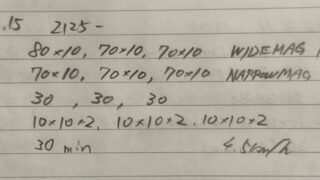 .15 2125-
80×10, 70×10, 70×10 WIDEMAG
70×10, 70×10, 70×10 NARROWMAG
30, 30, 30
10×10×2, 10×10×2, 10×10×2
30 min 4.5km/h